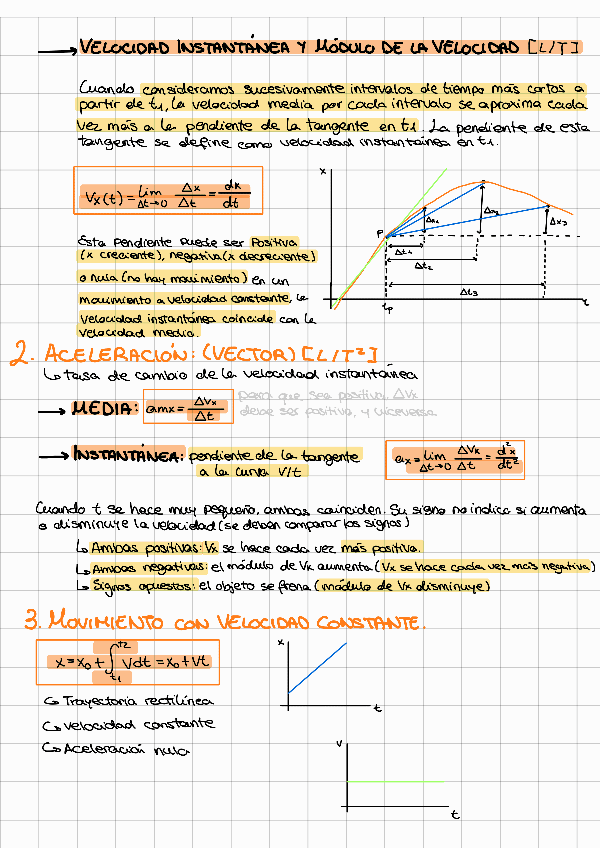 → VELOCIDAD INSTANTÁNEA Y MÓDULO DE LA VELOCIDAD [L/T]
Cuando consideramos sucesivamente intervalos de tiempo más cortos a
partir de t₁, la velocidad media por cada intervalo se aproxima cada
vez más a la pendiente de la tangente en t1. La pendiente de esta
tangente se define como velocidad instantánea en t1.
Vx(t) = lim Δt→0 Δx/Δt = dx/dt
x
P
Δx1
Δx2
Δx3
Δt1
Δt2
Δt3
tp
t
Esta pendiente puede ser positiva
(x creciente), negativa (x decreciente)
o nula (no hay movimiento) en un
movimiento a velocidad constante, la
velocidad instantánea coincide con la
velocidad media.
2. ACELERACIÓN: (VECTOR) [L/T²]
↳ tasa de cambio de la velocidad instantánea
→ MEDIA: amx = ΔVx/Δt
para que sea positiva, ΔVx
debe ser positiva, y viceversa.
→ INSTANTÁNEA: pendiente de la tangente
a la curva V/t
ax = lim Δt→0 ΔVx/Δt = d²x/dt²
Cuando t se hace muy pequeño, ambas coinciden. Su signo no indica si aumenta
o disminuye la velocidad (se deben comparar los signos)
↳ Ambas positivas: Vx se hace cada vez más positiva.
↳ Ambas negativas: el módulo de Vx aumenta (Vx se hace cada vez más negativa)
↳ Signos opuestos: el objeto se frena (módulo de Vx disminuye)
3. MOVIMIENTO CON VELOCIDAD CONSTANTE.
x = x₀ + ∫t1 t2 Vdt = x₀ + Vt
↳ Trayectoria rectilínea
↳ Velocidad constante
↳ Aceleración nula
x
t
V
t